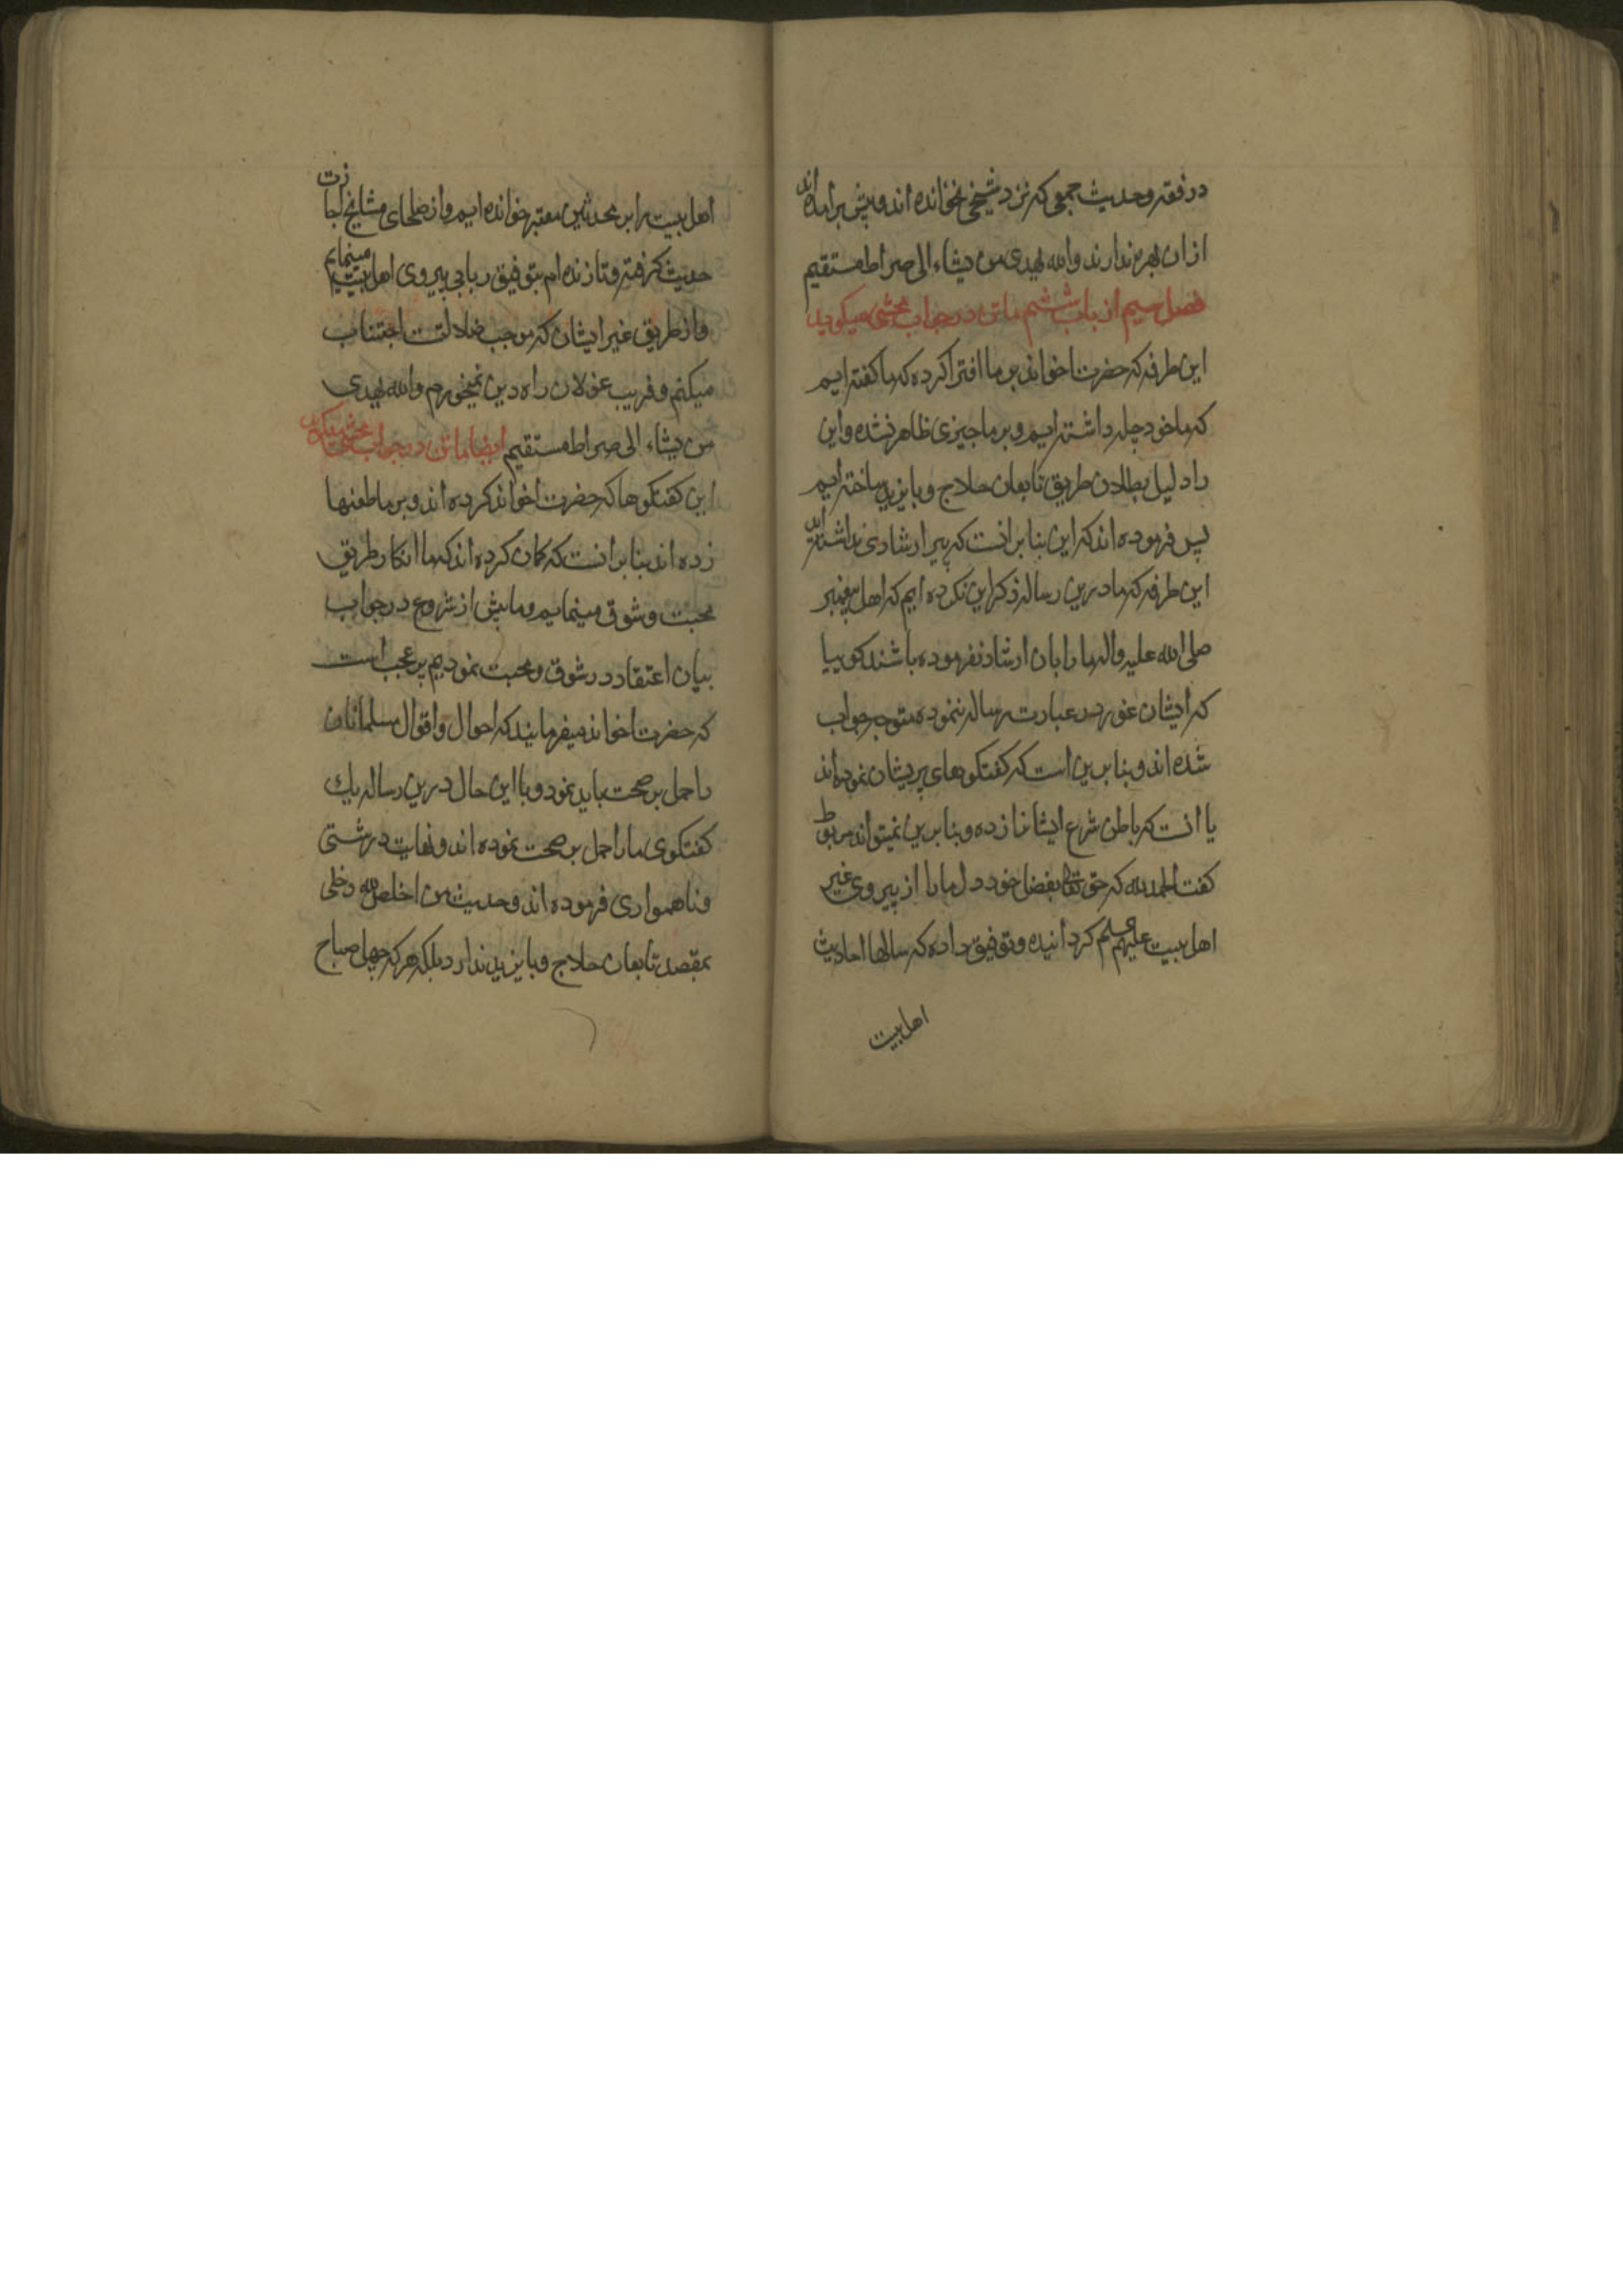 در فقه و حدیث جمعی که نزد شیخی نخوانده اند و پیش برامده اند
ازان بهره ندارند والله یهدی من یشاء الی صراط مستقیم
فصل سیم از باب ششم ماتن در جواب محشی میکوید
این طرفه که حضرت اخواند بر ما افترا کرده که ما کفته ایم
که ما خود چله داشته ایم و بر ما چیزی ظاهر نشده و این
را دلیل بطلان طریق تابعان حلاج و بایزید ساخته ایم
پس فرموده اند که این بنا بر انست که پیر ارشادی نداشته اند
این طرفه که ما درین رساله ذکر این نکرده ایم که اهل پیغمبر
صلی الله علیه واله ما را بان ارشاد نفرموده باشند کوییا
که ایشان غور در عبارت رساله ننموده متوجه جواب
شده اند و بنا برین است که کفتکوهای پریشان نموده اند
یا انست که باطن شرع ایشانرا زده و بنا برین نمیتواند مربوط
کفت الحمدلله که حق تعالی بفضل خود دل ما را از پیروی غیر
اهل بیت علیهم کردانیده و توفیق داده که سالها احادیث
اهل بیت
اهل بیت را بر محدثین معتبر خوانده ایم و از صلحای مشایخ اجازت
حدیث کرفته و تا زنده ام بتوفیق ربانی پیروی اهل بیت مینمایم
و از طریق غیر ایشان که موجب ضلالتست اجتناب
میکنم و فریب غولان راه دین نمیخورم والله یهدی
من یشاء الی صراط مستقیم ایضا ماتن در جواب محشی میکوید
این کفتکوها که حضرت اخواند کرده اند و بر ما طعنها
زده اند بنا بر انست که کمان کرده اند که ما انکار طریق
محبت و شوق مینماییم و ما پیش از شروع در جواب
بیان اعتقاد در شوق و محبت نمودیم پر عجب است
که حضرت اخواند میفرمایند که احوال و اقوال مسلمانان
را حمل بر صحت باید نمود و با این حال درین رساله یك
کفتکوی ما را حمل بر صحت ننموده اند و نهایت درشتی
و ناهمواری فرموده اند و حدیث من اخلص لله دخلی
بمقصد تابعان حلاج و بایزید ندارد بلکه هر که چهل صباح